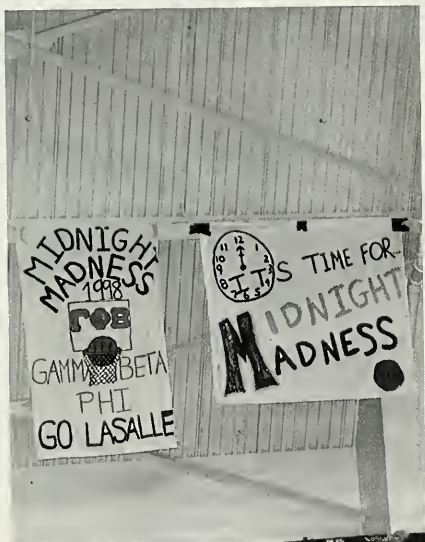 MIDNIGHT
MADNESS
1998
ΓΦΒ
GAMMA BETA
PHI
GO LASALLE
12
11 1
10 2
9 3
8 4
7 6 5
ITS TIME FOR...
MIDNIGHT
ADNESS